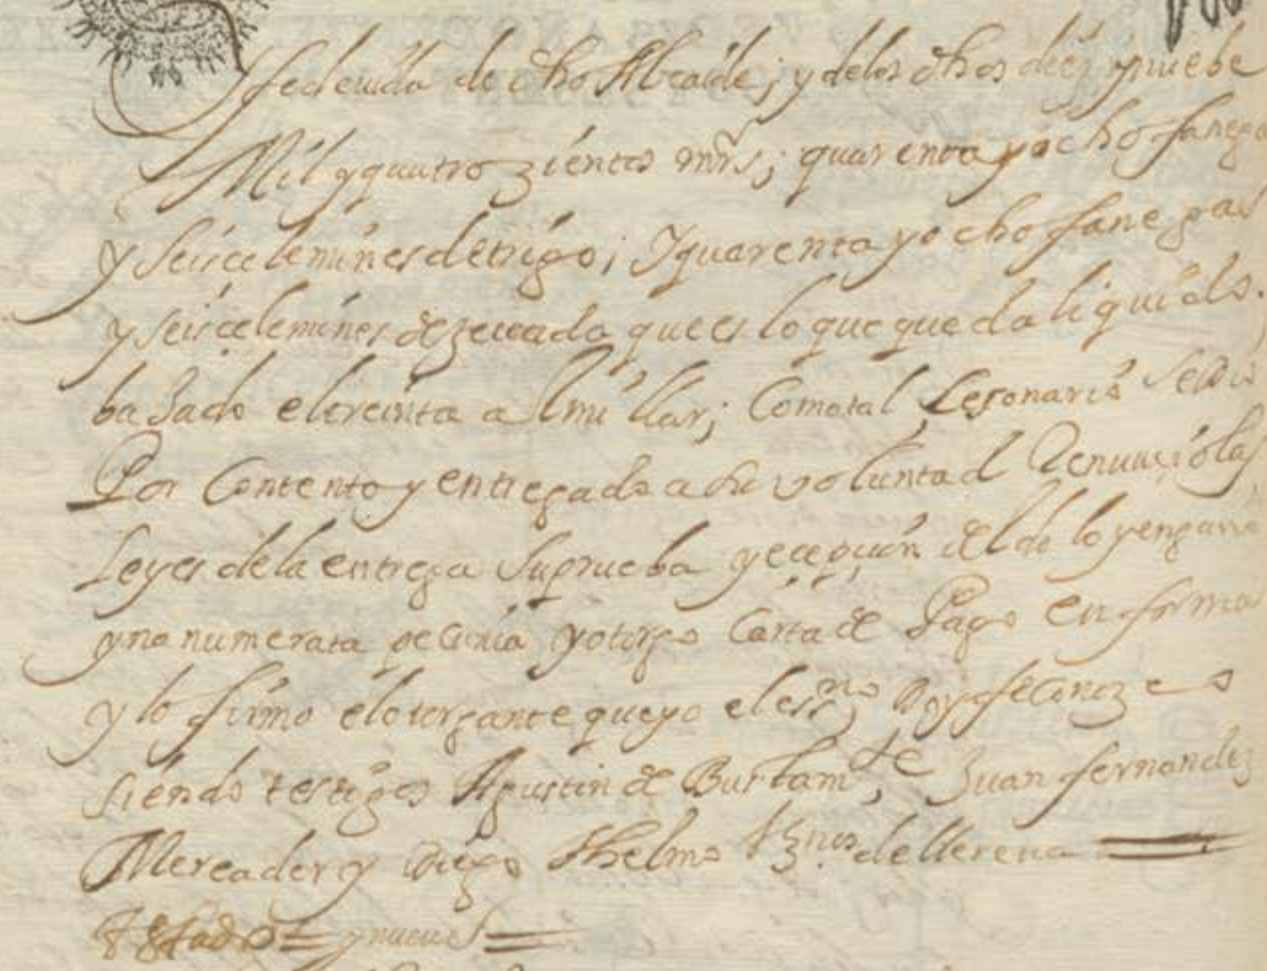 fecienda de dho Alcaide; y delos dhos diez y nuebe
Mil y quatro zientos mrs; quarenta y ocho fanegas
y seis celemines de trigo; y quarenta y ocho fanegas
y seis celemines de zevada que es lo que queda liquido.
baxado el treinta al millar; Comotal Lesonario sedio
Por Contento y entregado a su voluntad Renunçio las
Leyes dela entrega su prueba y ecepçion del dolo y engaño
y no numerata pecunia y otorgo Carta de Pago en forma
y lo firmo el otorgante que yo el essno Doy fe Conozco
siendo testigos Agustin de Bustamte, Juan fernandez
Mercader y Diego Thelmo Vznos de llerena
y nueue